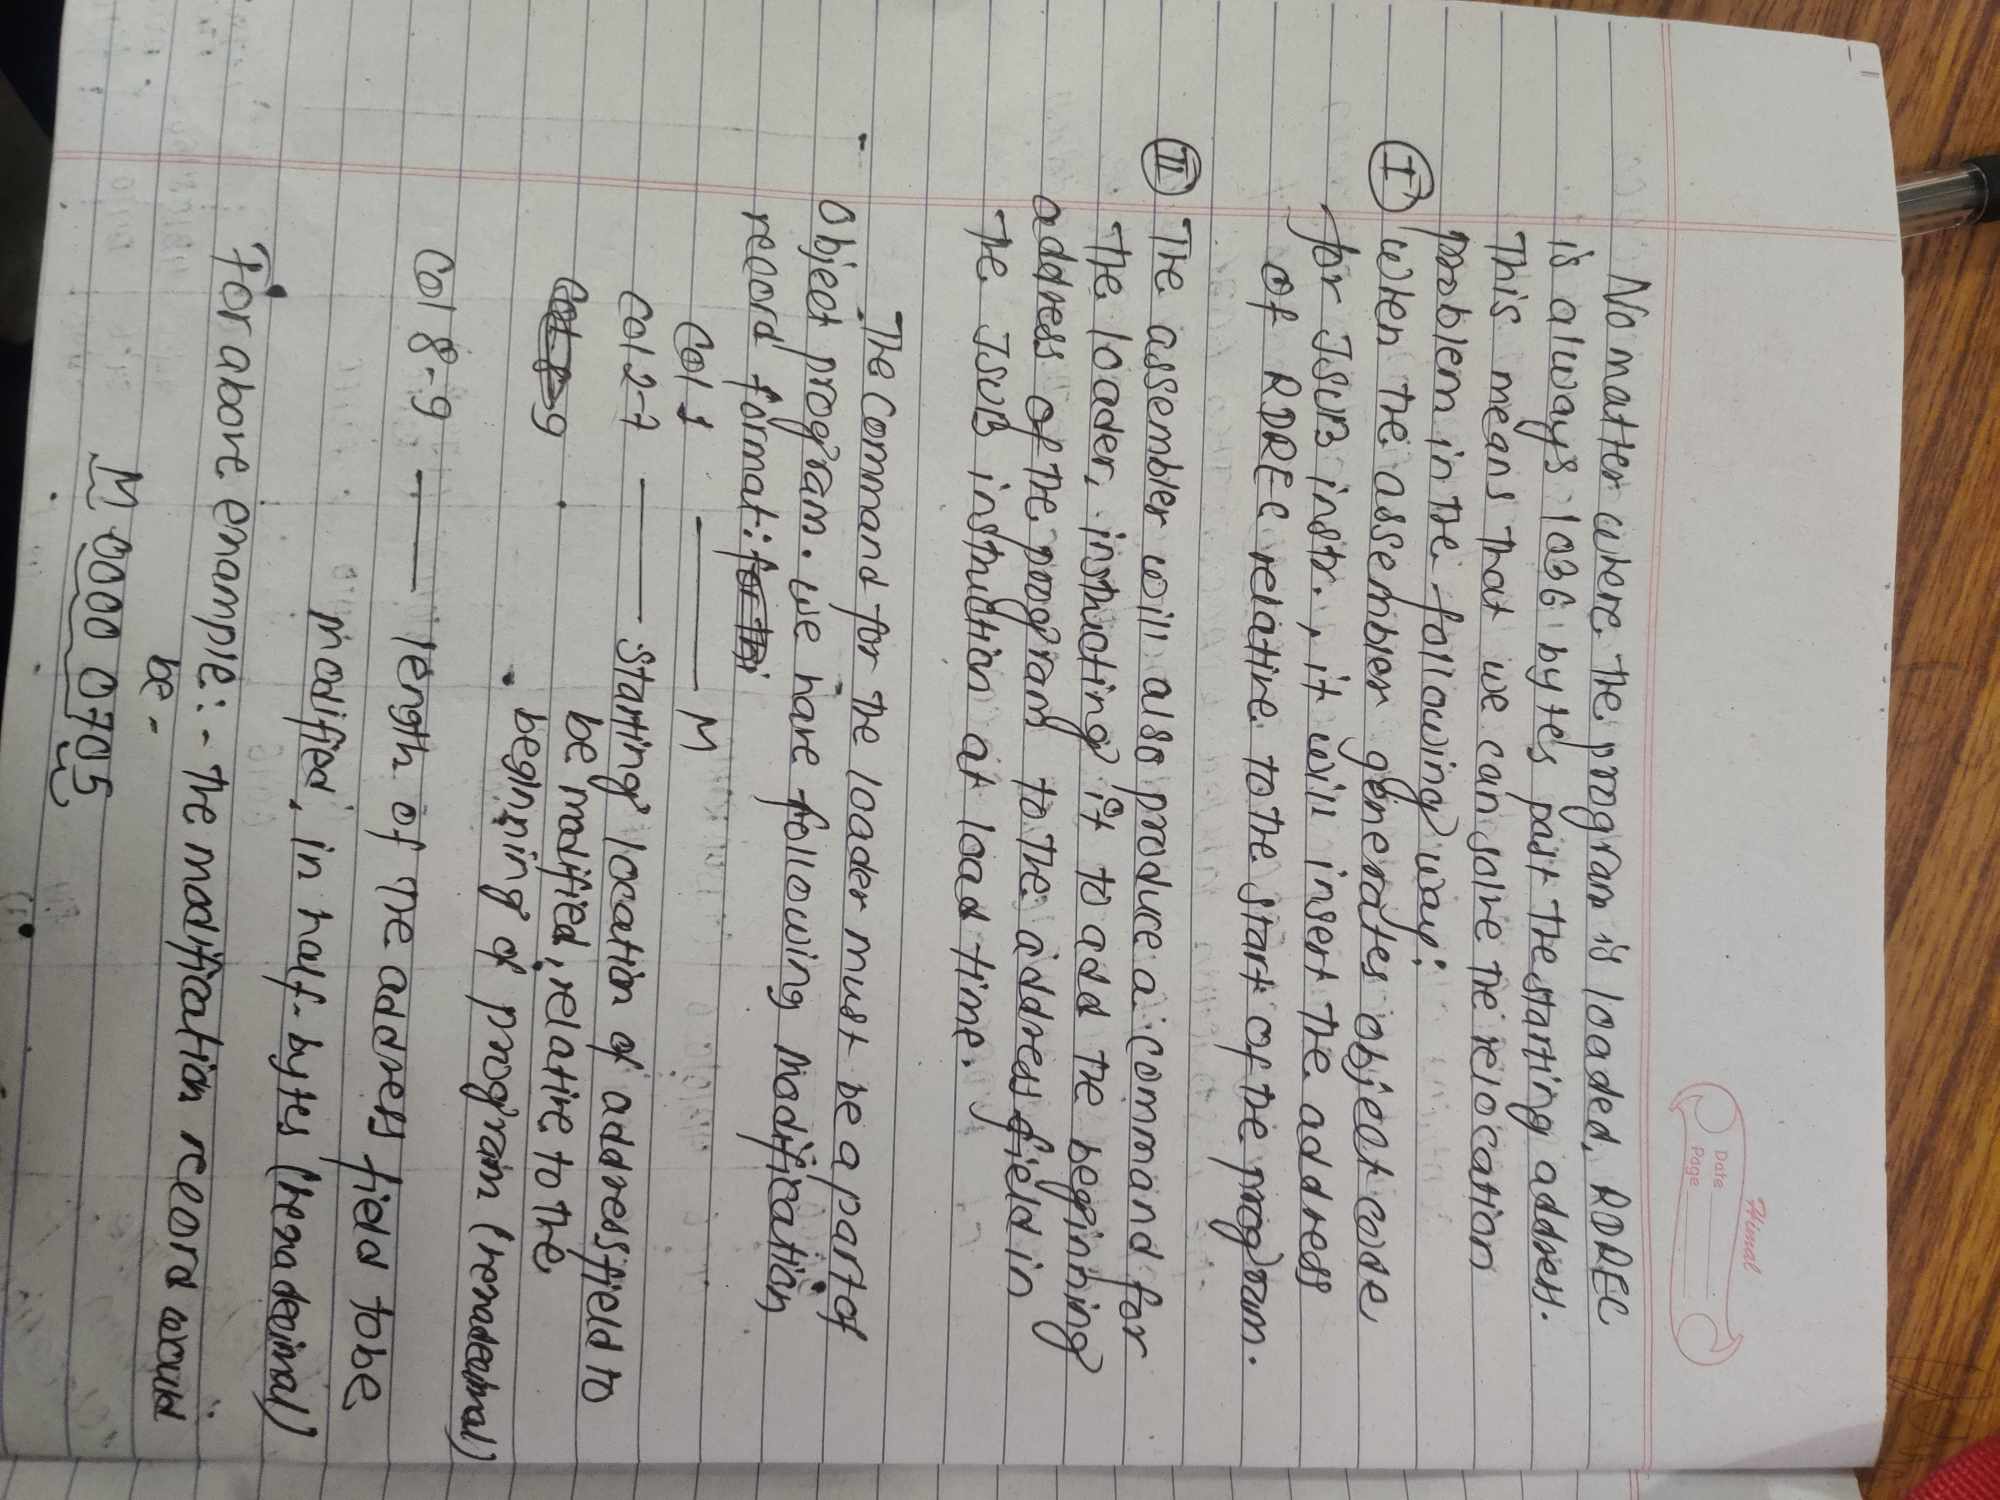 Himal
Date
Page
No matter where the program is loaded, RDREC
is always 1036 bytes past the starting address.
This means that we can solve the relocation
problem in the following way:
I When the assembler generates object code
for JSUB instr., it will insert the address
of RDREC relative to the start of the program.
II The assembler will also produce a command for
the loader, instructing it to add the beginning
address of the program to the address field in
the JSUB instruction at load time.
The Command for the loader must be a part of
Object program. we have following Modification
record format:
Col 1 — M
Col 2-7 — Starting location of address field to
be modified, relative to the
beginning of program (hexadecimal)
Col 8-9 — length of the address field to be
modified, in half-bytes (hexadecimal)
For above example:- The modification record would
be -
M 0000 0705